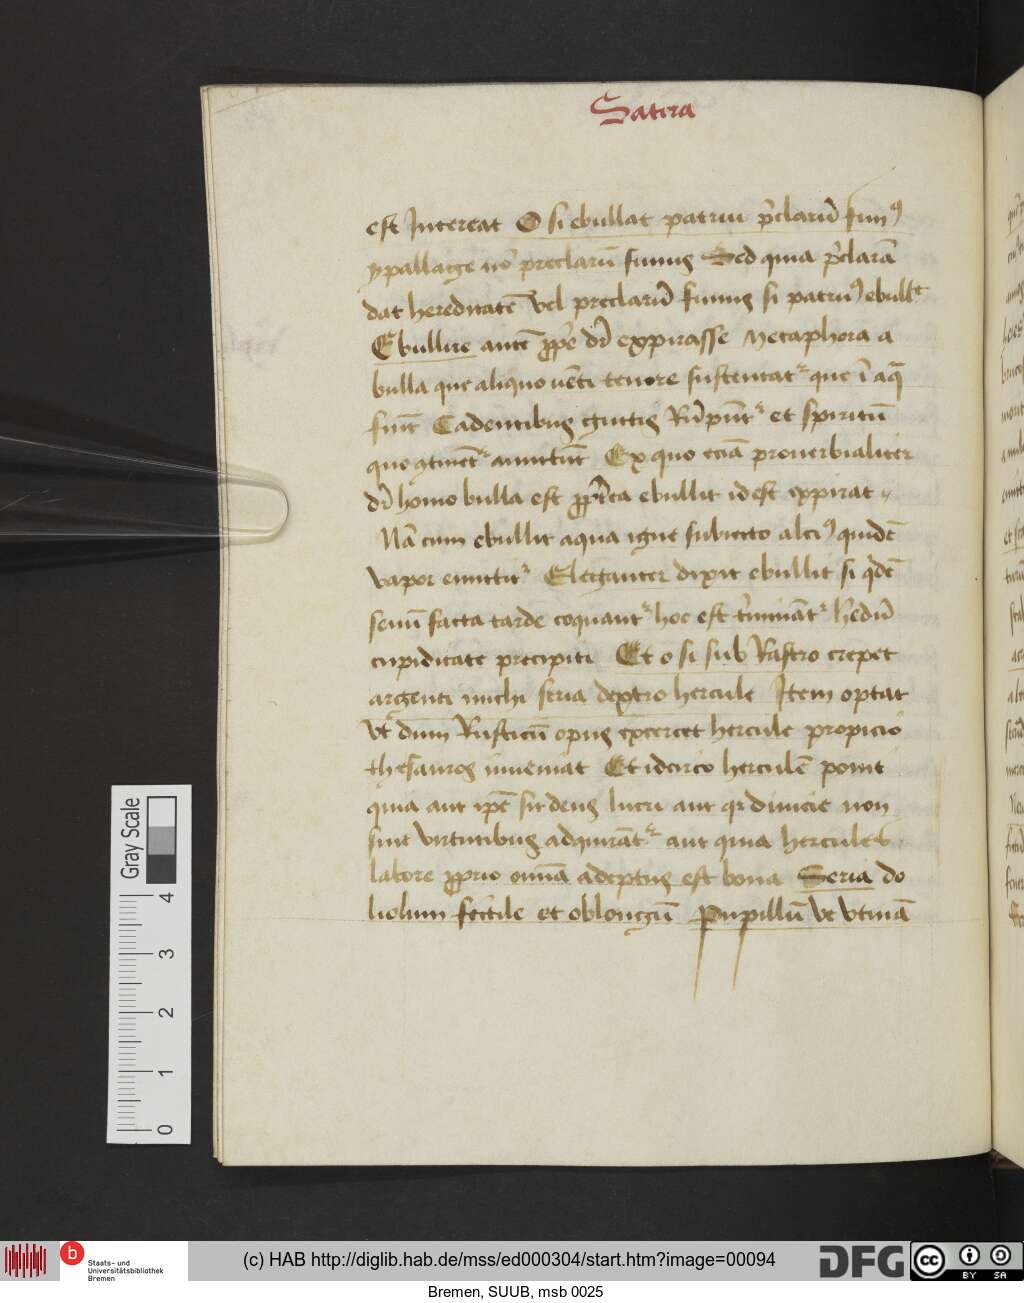 Satira
est Intereat O si ebullat patrui p̄clarū fun⁹
ypallage nō preclarū funus Sed quia p̄clarā
dat hereditatē vel preclarū funus si patru⁹ ebull
Ebullire autē dr̄ expirasse Metaphora a
bulla que aliquo vēti tenore sustentat᷑ que ī aq̄
funt Cadentibus guttis Rūpūt᷑ et spiritū
quo ꝯtinēt᷑ amittūt Ex quo eciā prouerbialiter
dr̄ homo bulla est ebullit idest expirat
Nā cum ebullit aqua igne subiecto alci⁹ quidē
vapor emittit᷑ Eleganter dixit ebullit si qͥdē
senū facta tarde coquant᷑ hoc est h̄edū
cupiditate precipiti Et o si sub Rastro crepet
argenti michi seria dextro hercule Item optat
vt dum Rusticū opus excercet hercule propicio
thesauros inueniat Et idcirco herculē ponit
quia aut ip̄e sit deus lucri aut qr diuicie non
sint virtutibus adquirāt᷑ aut quia hercules
labore ꝓprio omīa adeptus est bona Seria do
liolum fictile et oblongū Pupillū vt vtinā
Gray Scale
4
3
2
1
0
b
Staats- und
Universitätsbibliothek
Bremen
(c) HAB http://diglib.hab.de/mss/ed000304/start.htm?image=00094
DFG
cc
BY SA
Bremen, SUUB, msb 0025